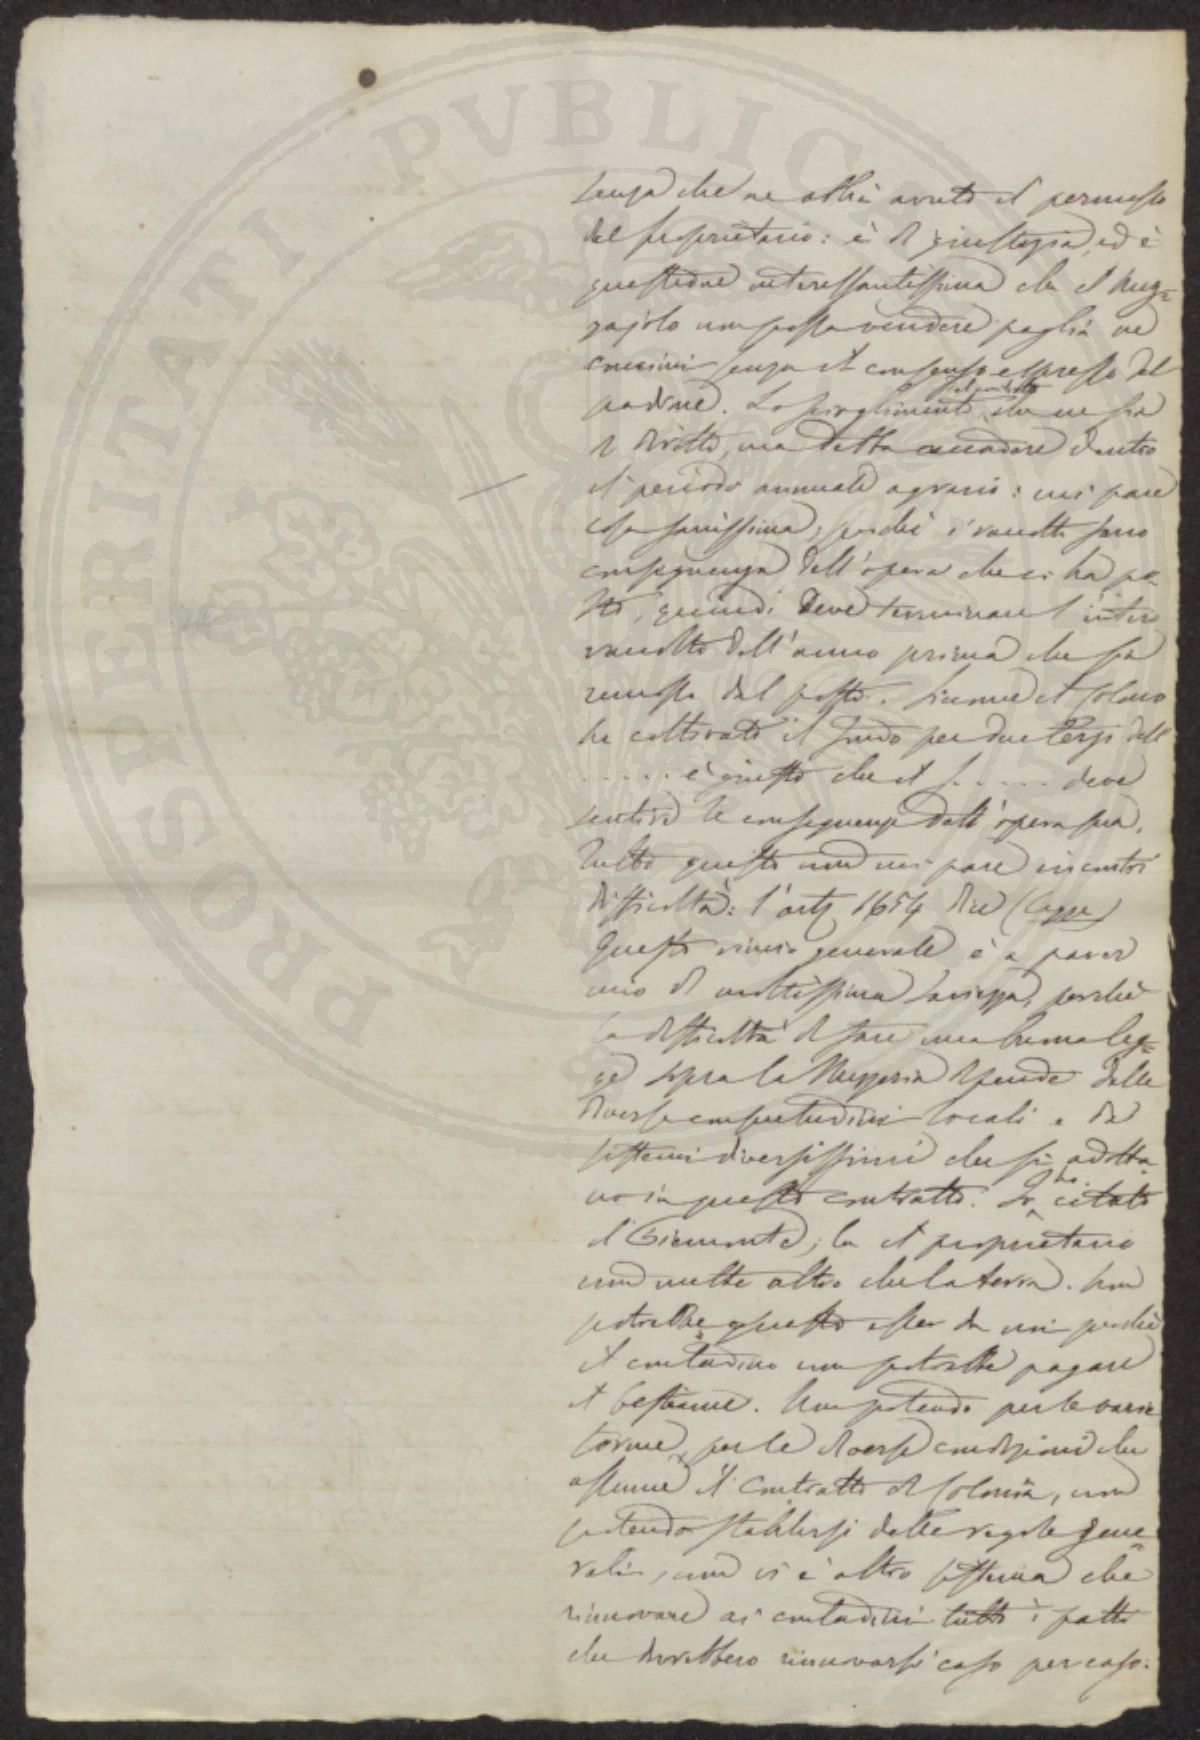 PROSPERITATI PVBLIC
senza che ne abbia avuto il permesso
del proprietario: è di giustizia, ed è
questione interessantissima che il Mez=
zajolo non possa vendere paglia ne
concimi senza il consenso espresso del
padrone. Lo scioglimento, che ne sia
il diritto, ma debba accadere dentro
il periodo annuale agrario: mi pare
cosa savissima, perchè i raccolti sono
conseguenza dell'opera che ci ha po=
sto, quindi deve terminare l'intero
raccolto dell'anno prima che sia
remosso dal posto. Siccome il Colono
ha coltivato il fondo per due terzi dell
...... è giusto che il s...... deve
sentire le conseguenze dell'opera sua.
Tutto questo non mi pare incontri
difficoltà: l'art. 1654 dice (Legge)
Questo rinvio generale è a parer
mio di moltissima saviezza, perchè
la difficoltà di fare una buona leg=
ge sopra la Mezzeria dipende dalle
diverse consuetudini locali e da
sistemi diversissimi che si adotta=
no in questo contratto. Io ho citato
il Piemonte, la il proprietario
non mette altro che la terra. Non
potrebbe questo esser da noi perchè
il contadino non potrebbe pagare
il bestiame. Non potendo per le varie
forme, per le diverse condizioni che
assume il Contratto di Colonia, non
potendo stabilirsi delle regole gene=
rali, non vi è altro sistema che
rinnovare ai contadini tutti i patti
che dovrebbero rinnovarsi caso per caso.